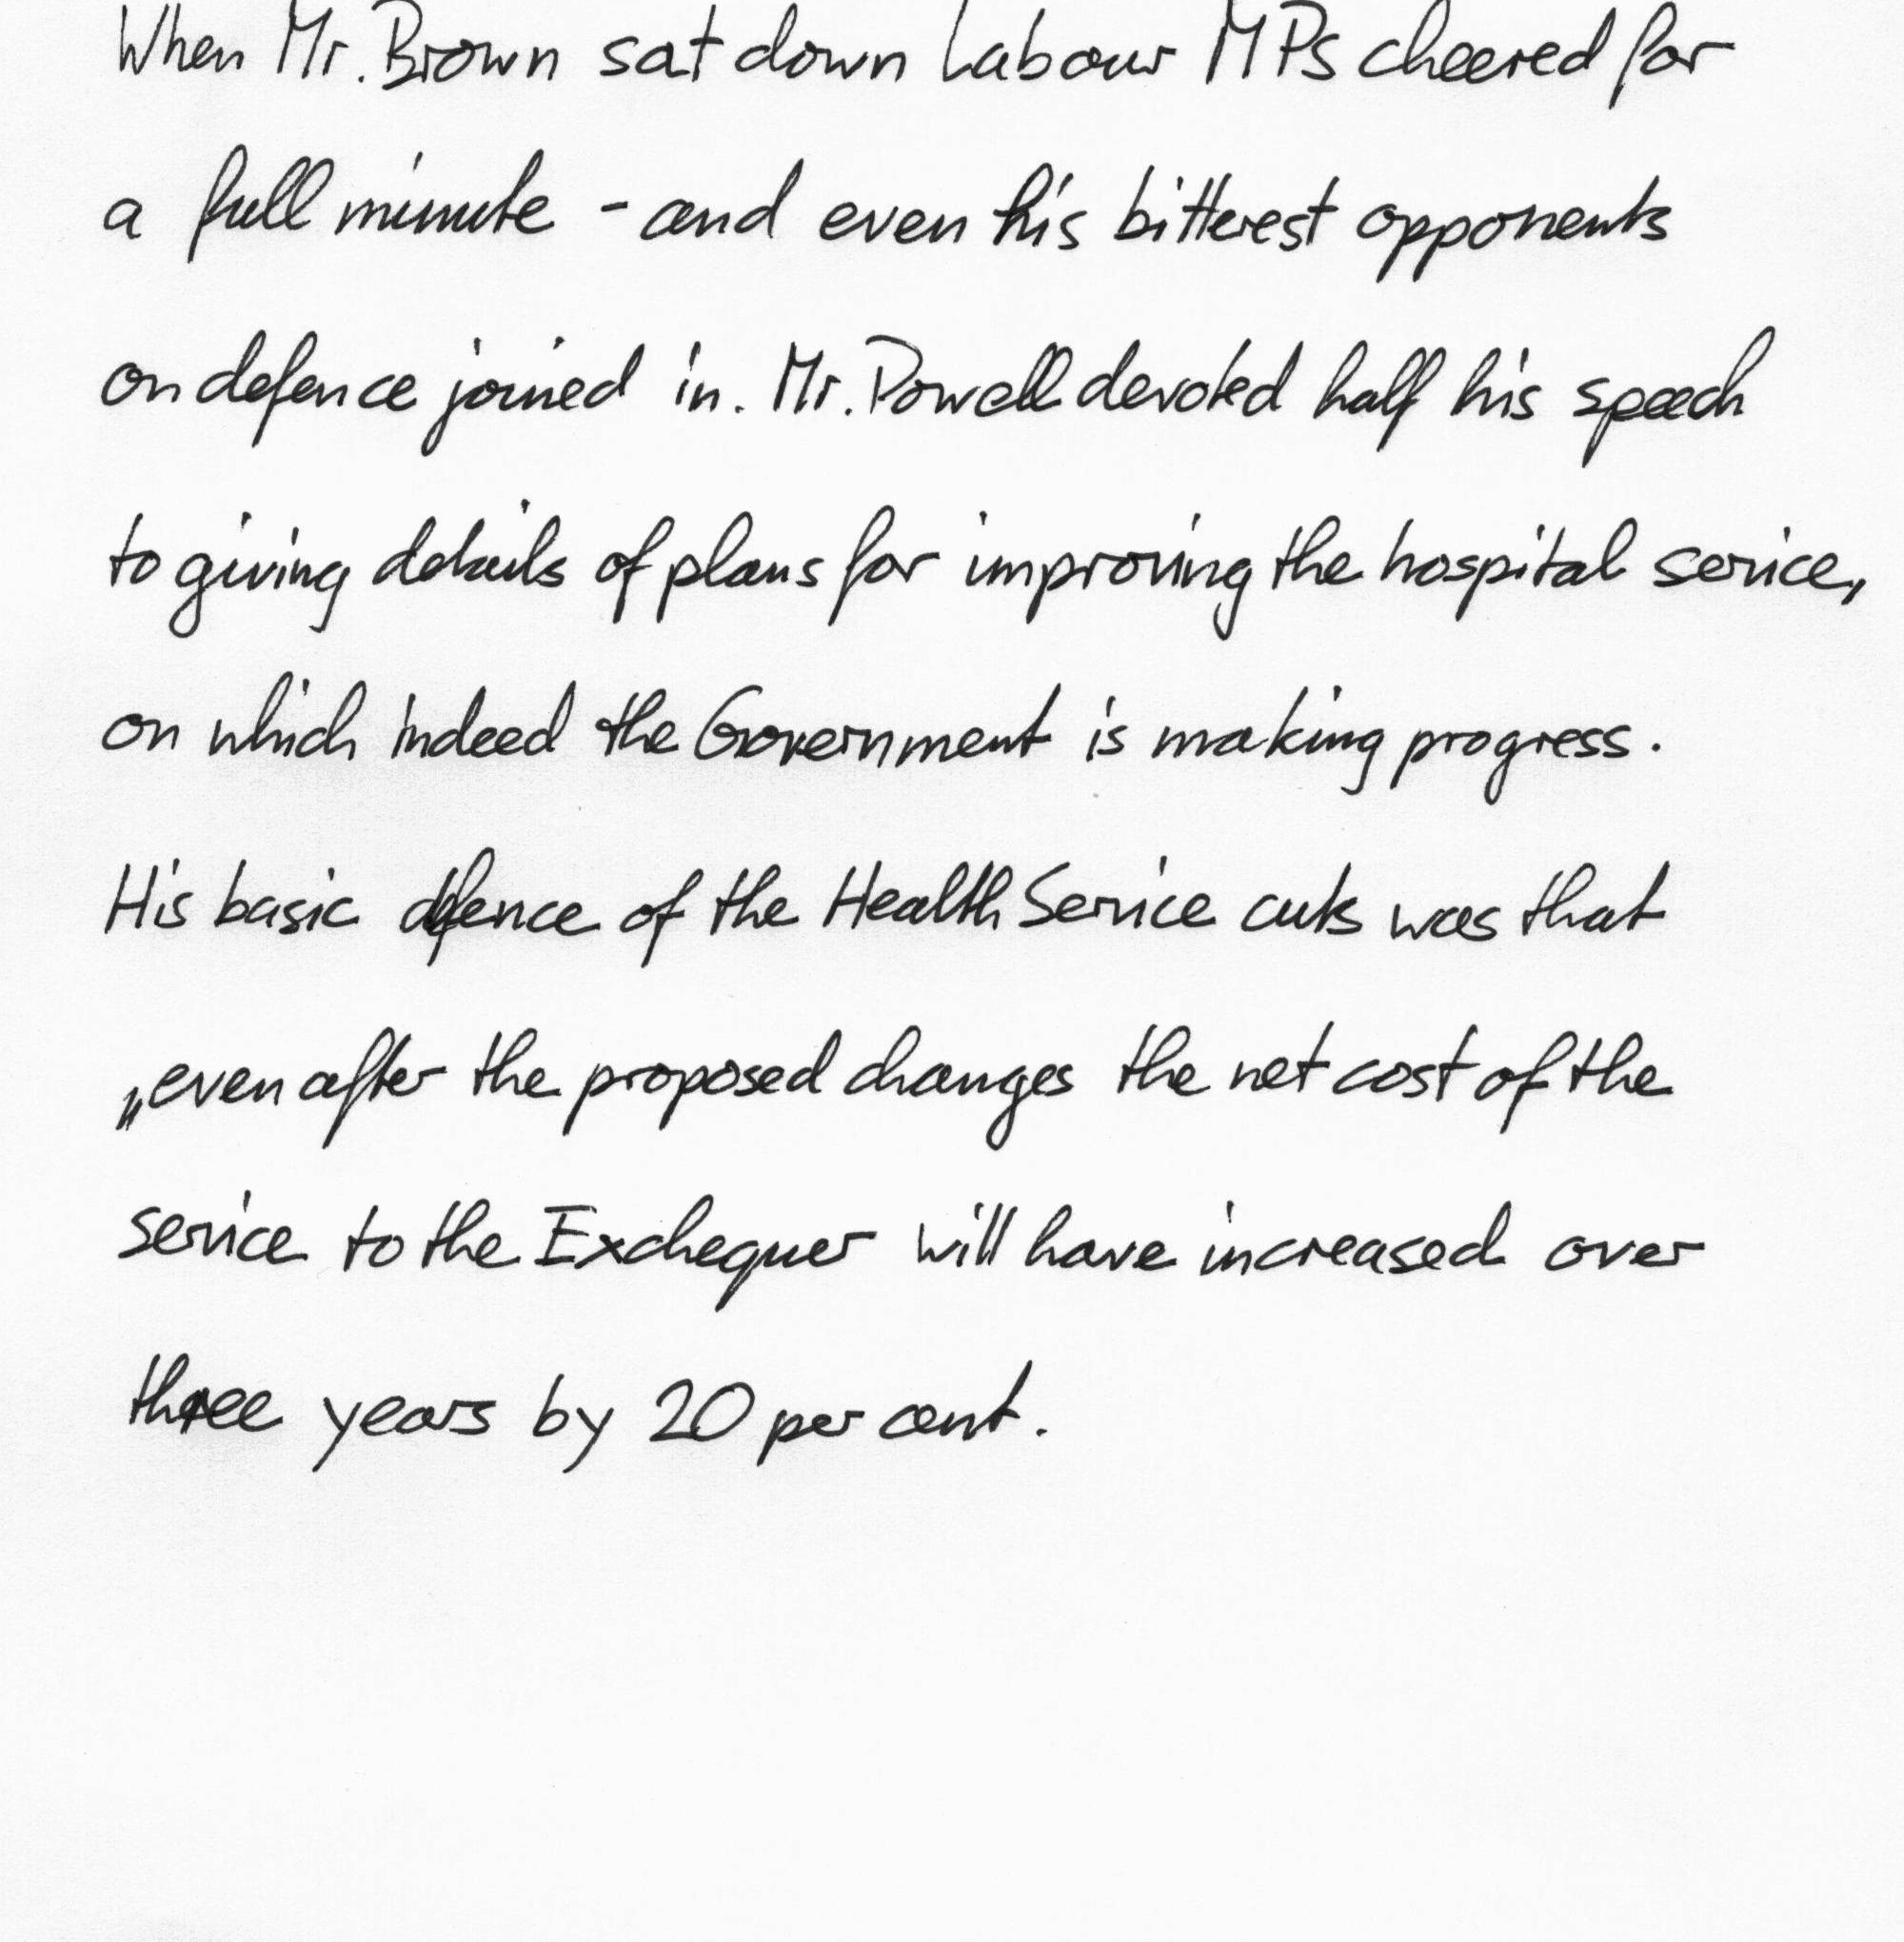 When Mr. Brown sat down Labour MPs cheered for
a full minute - and even his bitterest opponents
on defence joined in. Mr. Powell devoted half his speech
to giving details of plans for improving the hospital service,
on which indeed the Government is making progress.
His basic defence of the Health Service cuts was that
„even after the proposed changes the net cost of the
service to the Exchequer will have increased over
three years by 20 per cent.